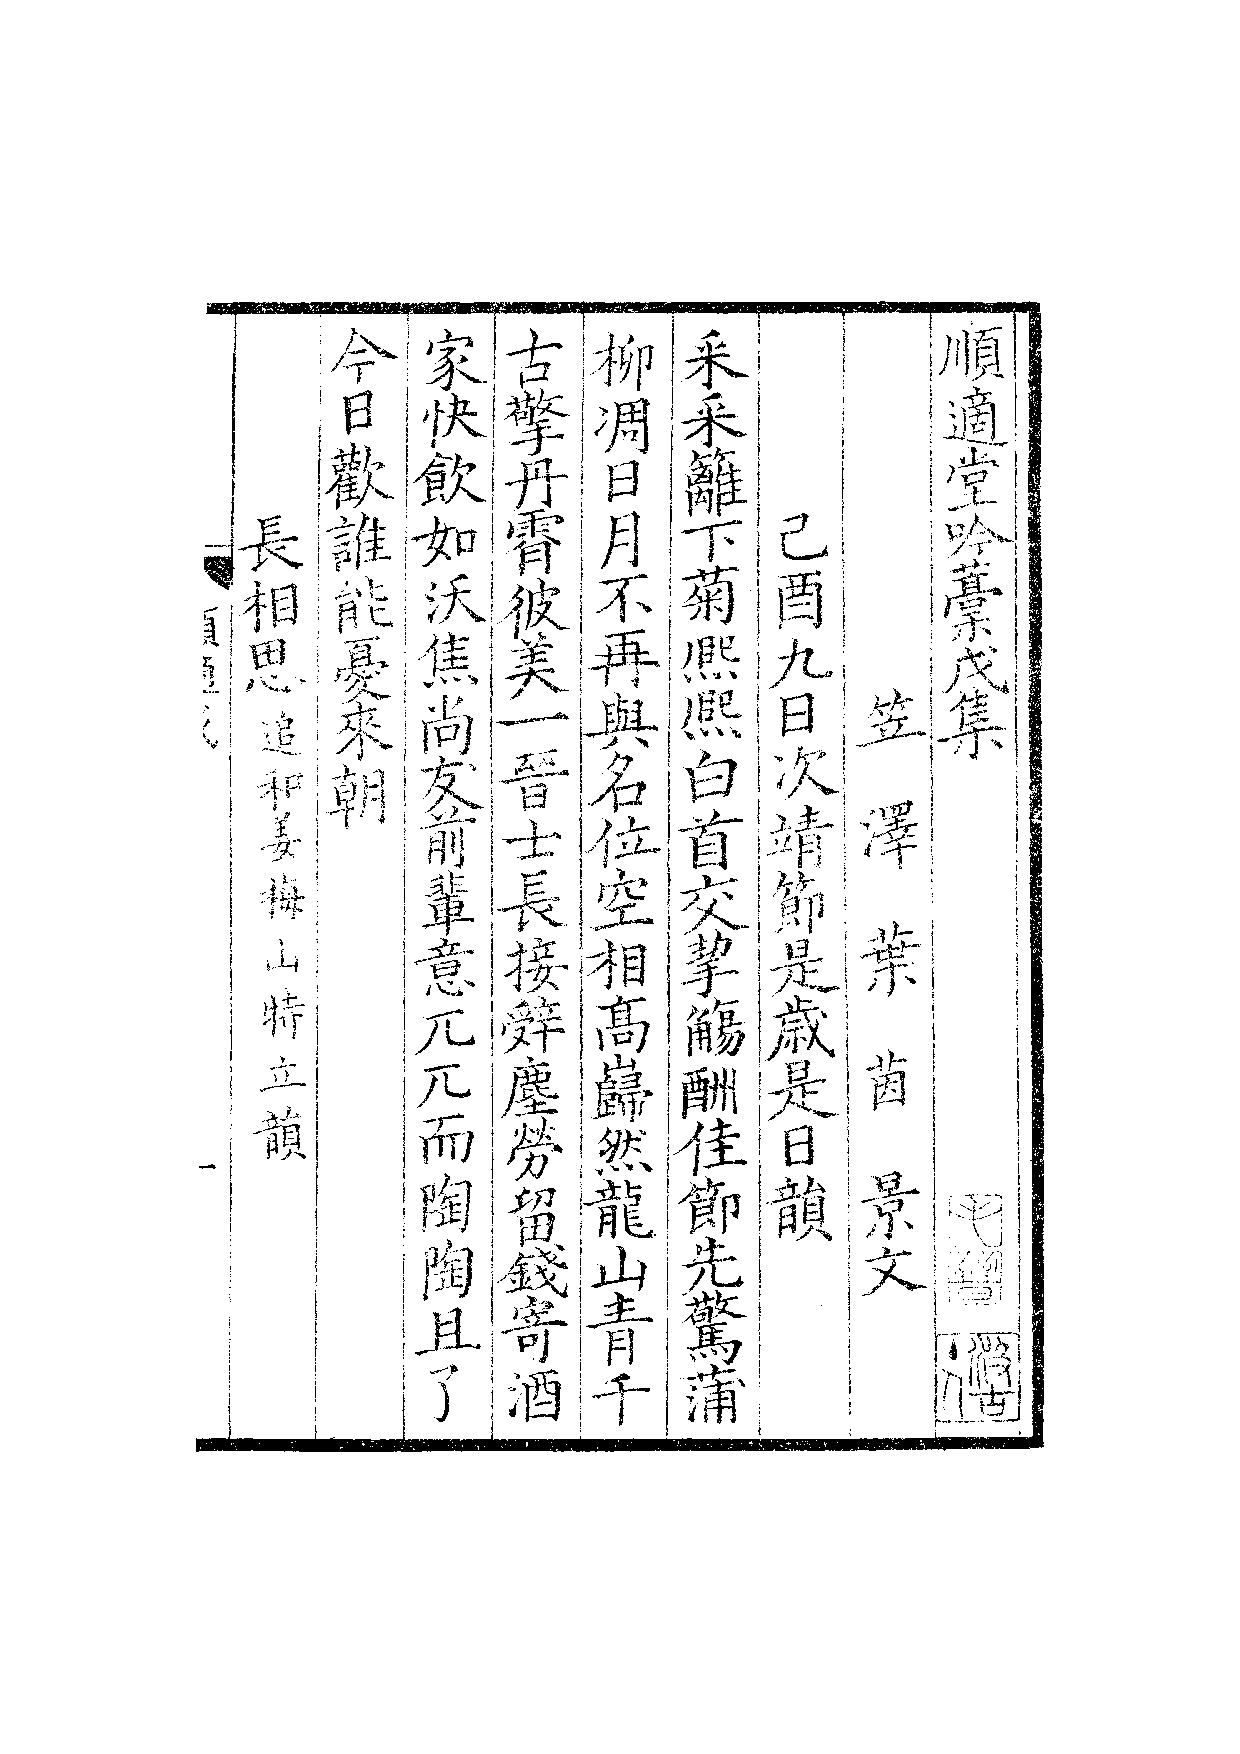 順適堂吟藁戊集
笠澤葉茵景文
己酉九日次靖節是歲是日韻
采采籬下菊熈熈白首交挈觴酬佳節先驚蒲
柳凋日月不再與名位空相髙巋然龍山青千
古擎丹霄彼美一晉士長接辤塵勞留錢寄酒
家快飲如沃焦尚友前輩意兀兀而陶陶且了
今日歡誰能憂來朝
長相思追和姜梅山特立韻
一